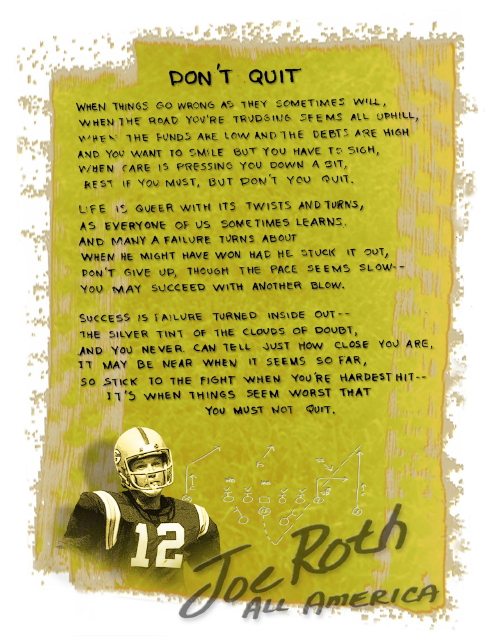 DON'T QUIT
WHEN THINGS GO WRONG AS THEY SOMETIMES WILL,
WHEN THE ROAD YOU'RE TRUDGING SEEMS ALL UPHILL,
WHEN THE FUNDS ARE LOW AND THE DEBTS ARE HIGH
AND YOU WANT TO SMILE BUT YOU HAVE TO SIGH,
WHEN CARE IS PRESSING YOU DOWN A BIT,
REST IF YOU MUST, BUT DON'T YOU QUIT.
LIFE IS QUEER WITH ITS TWISTS AND TURNS,
AS EVERYONE OF US SOMETIMES LEARNS.
AND MANY A FAILURE TURNS ABOUT
WHEN HE MIGHT HAVE WON HAD HE STUCK IT OUT,
DON'T GIVE UP, THOUGH THE PACE SEEMS SLOW--
YOU MAY SUCCEED WITH ANOTHER BLOW.
SUCCESS IS FAILURE TURNED INSIDE OUT--
THE SILVER TINT OF THE CLOUDS OF DOUBT,
AND YOU NEVER CAN TELL JUST HOW CLOSE YOU ARE,
IT MAY BE NEAR WHEN IT SEEMS SO FAR,
SO STICK TO THE FIGHT WHEN YOU'RE HARDEST HIT--
IT'S WHEN THINGS SEEM WORST THAT
YOU MUST NOT QUIT.
12
Joe Roth
ALL AMERICA